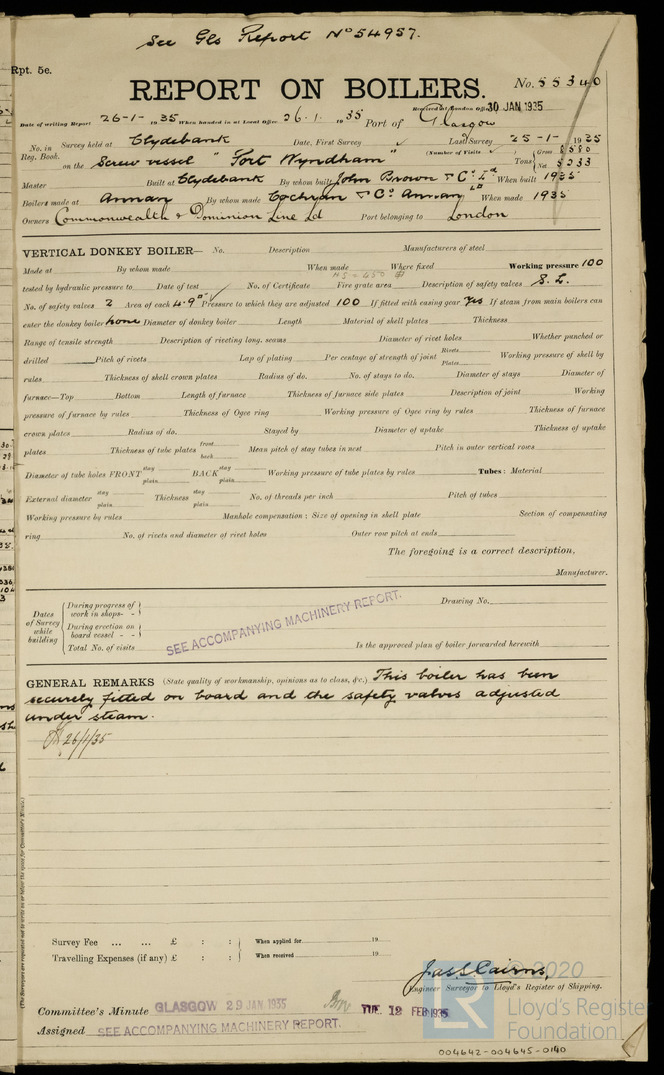 See Gls Report No 54957.
Rpt. 5c.
REPORT ON BOILERS. No. 55340
Received at London Office 30 JAN 1935
Date of writing Report 26-1- 1935 When handed in at Local Office 26.1. 1935 Port of Glasgow
No. in Survey held at Clydebank Date, First Survey Last Survey 25-1- 1935
Reg. Book. (Number of Visits
on the Screw vessel "Port Wyndham" Tons { Gross 8580 Net 5233
Master Built at Clydebank By whom built John Brown & Co. Ld When built 1935
Boilers made at Annan By whom made Cochran & Co. Annan Ld When made 1935
Owners Commonwealth & Dominion Line Ld Port belonging to London
VERTICAL DONKEY BOILER— No. Description Manufacturers of steel
Made at By whom made When made Where fixed Working pressure 100
tested by hydraulic pressure to Date of test No. of Certificate Fire grate area Description of safety valves S.L.
No. of safety valves 2 Area of each 4.9" Pressure to which they are adjusted 100 If fitted with easing gear Yes If steam from main boilers can
enter the donkey boiler none Diameter of donkey boiler Length Material of shell plates Thickness
Range of tensile strength Description of riveting long. seams Diameter of rivet holes Whether punched or
drilled Pitch of rivets Lap of plating Per centage of strength of joint Rivets Plates Working pressure of shell by
rules Thickness of shell crown plates Radius of do. No. of stays to do. Diameter of stays Diameter of
furnace—Top Bottom Length of furnace Thickness of furnace side plates Description of joint Working
pressure of furnace by rules Thickness of Ogee ring Working pressure of Ogee ring by rules Thickness of furnace
crown plates Radius of do. Stayed by Diameter of uptake Thickness of uptake
plates Thickness of tube plates front back Mean pitch of stay tubes in nest Pitch in outer vertical rows
Diameter of tube holes FRONT stay plain BACK stay plain Working pressure of tube plates by rules Tubes: Material
External diameter stay plain Thickness stay plain No. of threads per inch Pitch of tubes
Working pressure by rules Manhole compensation: Size of opening in shell plate Section of compensating
ring No. of rivets and diameter of rivet holes Outer row pitch at ends
The foregoing is a correct description,
Manufacturer.
Dates of Survey while building
During progress of work in shops- -
During erection on board vessel - -
Total No. of visits
SEE ACCOMPANYING MACHINERY REPORT.
Drawing No.
Is the approved plan of boiler forwarded herewith
GENERAL REMARKS (State quality of workmanship, opinions as to class, &c.) This boiler has been
securely fitted on board and the safety valves adjusted
under steam.
26/1/35
(The Surveyors are requested not to write on or below the space for Committee's Minute.)
Survey Fee ... ... £ : : When applied for 19
Travelling Expenses (if any) £ : : When received 19
Jas S Cairns,
Engineer Surveyor to Lloyd's Register of Shipping.
Committee's Minute GLASGOW 29 JAN 1935 TUE. 12 FEB 1935
Assigned SEE ACCOMPANYING MACHINERY REPORT.
© 2020
LR
Lloyd's Register
Foundation
004642-004645-0140